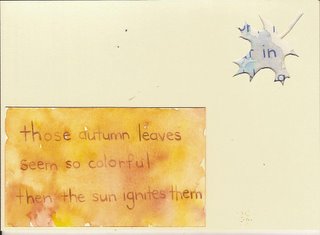 in
those autumn leaves
seem so colorful
then the sun ignites them